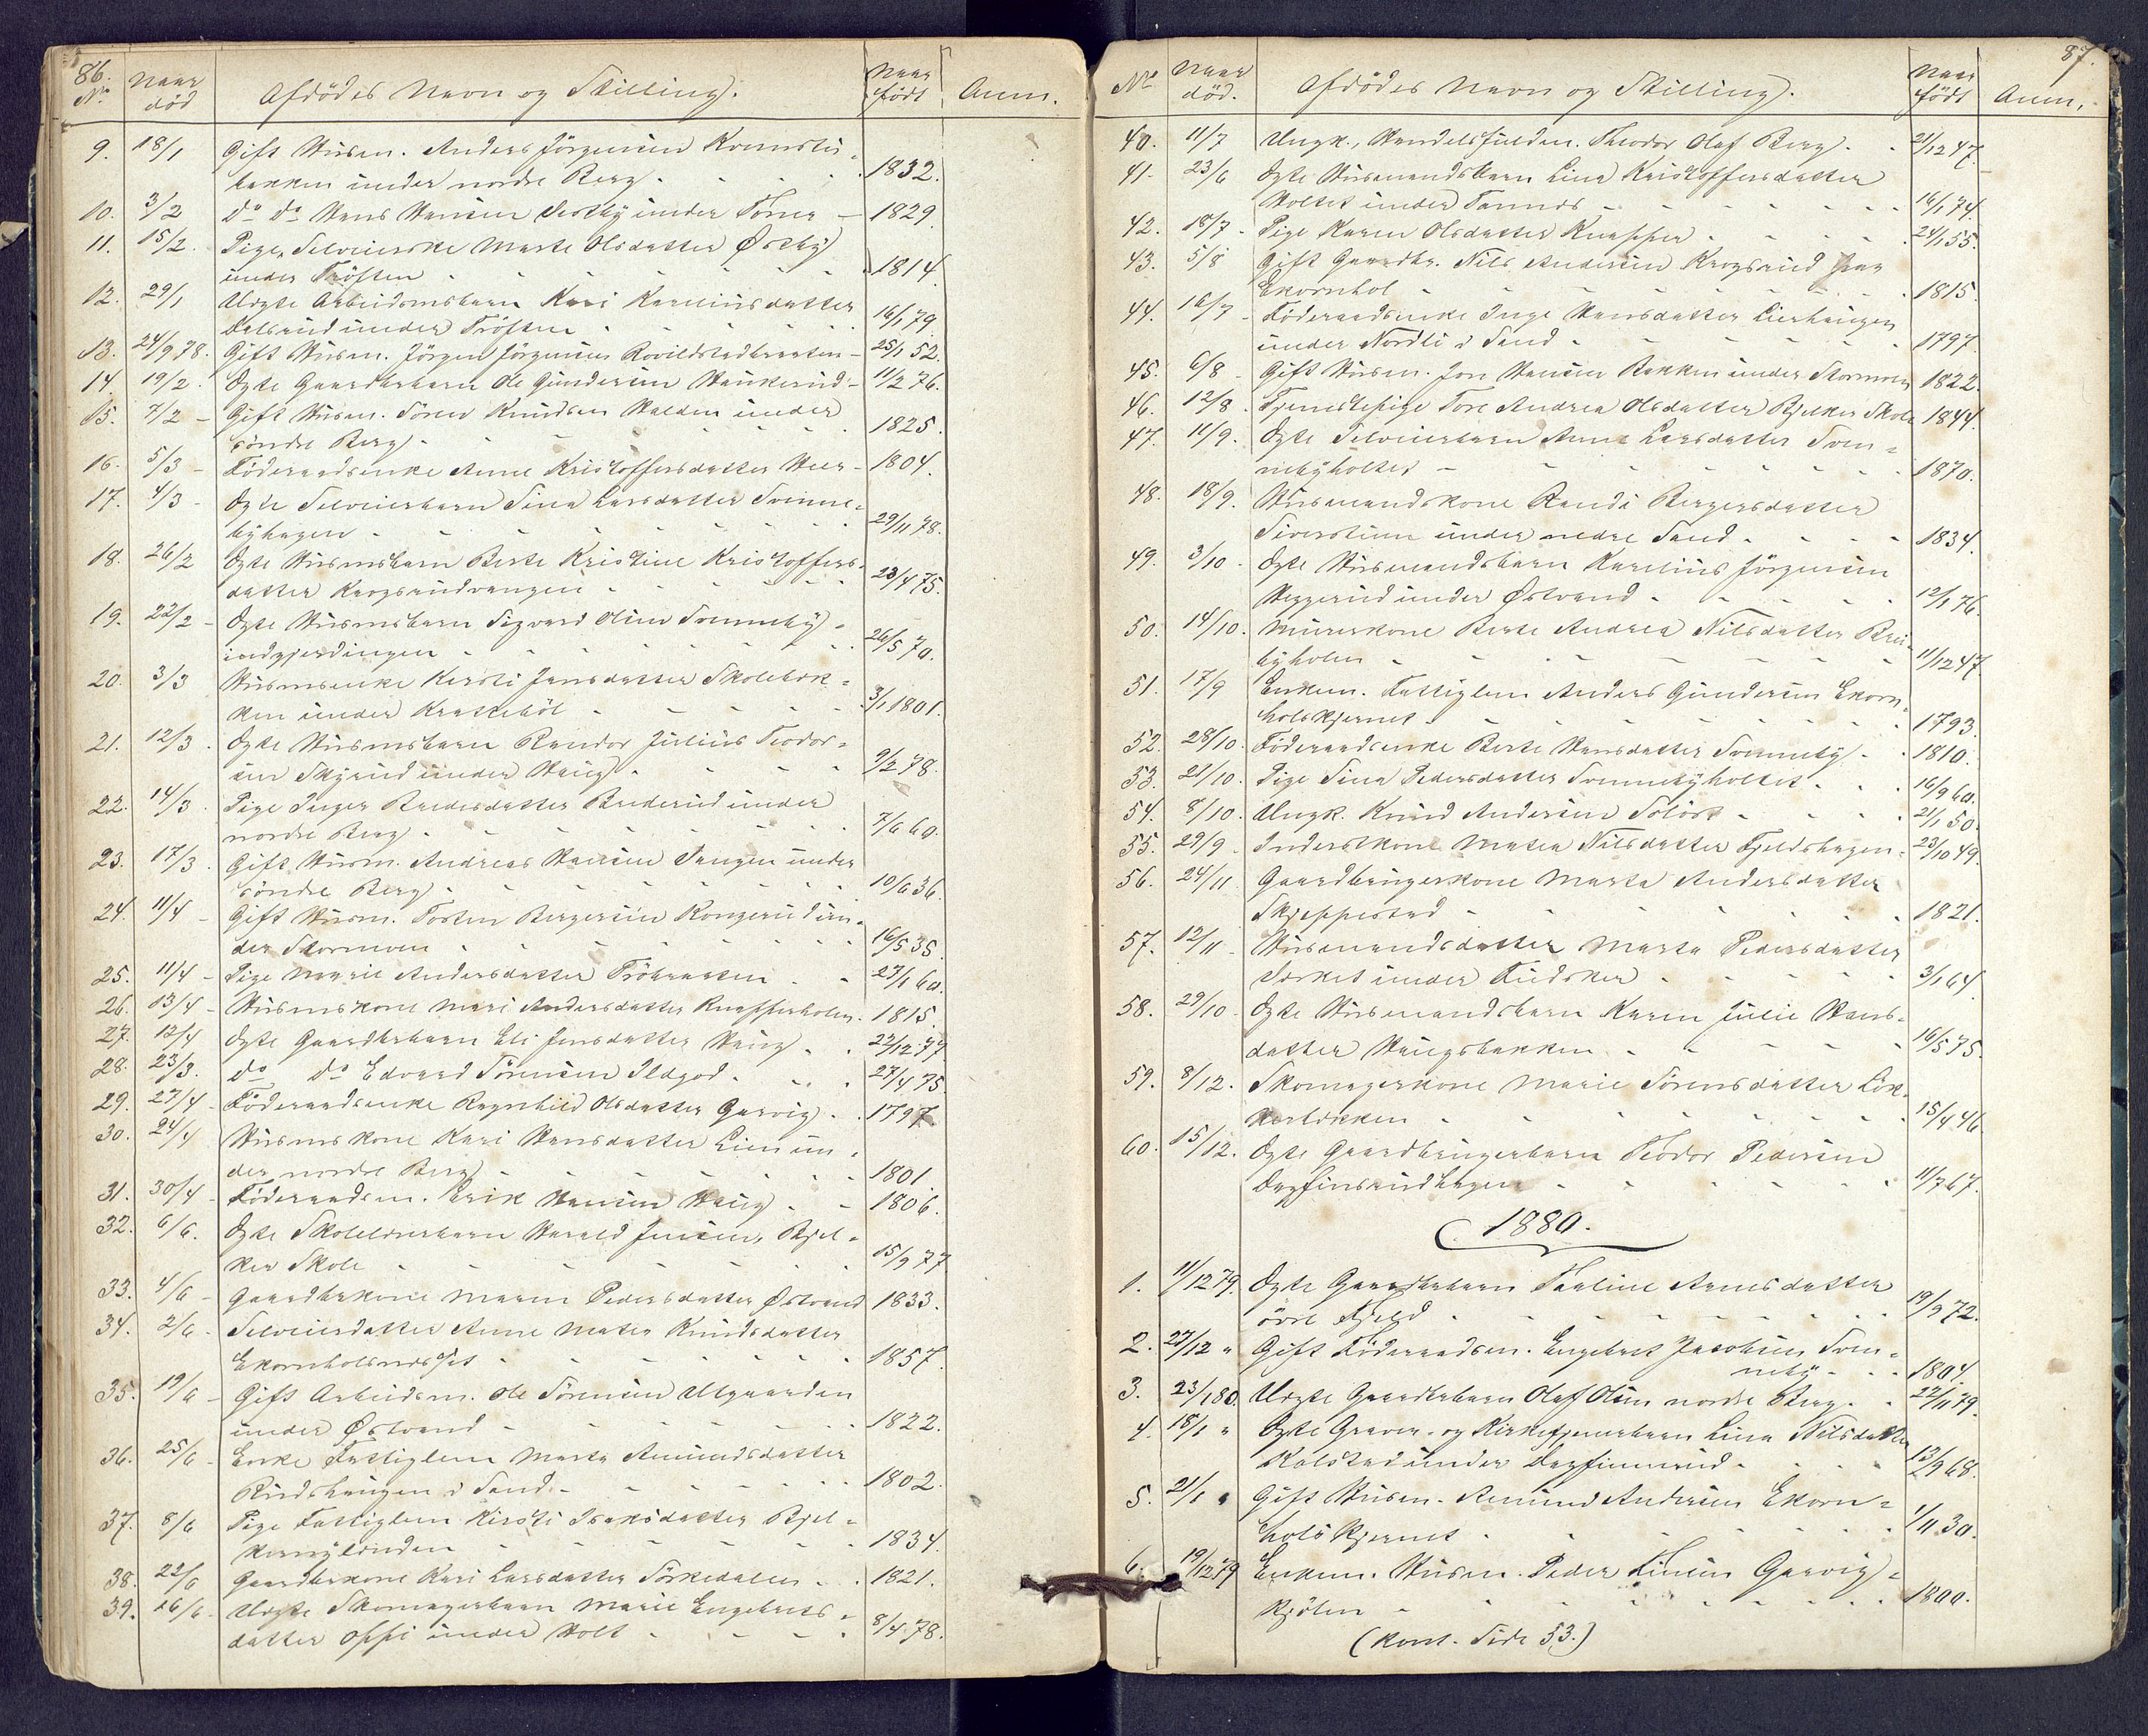 86.
No. Naar død Afdødes Navn og Stilling. Naar født Anm.
9. 18/1 Gift Husm. Anders Jörgensen
bakken under nordre Berg - 1832.
10. 3/2 do do Hans Hansen under - 1829.
11. 15/2. Pige, Selveierske Marte Olsdatter Østby
under Tröften - 1814.
12. 29/1 Uægte Arbeidsmsbarn Kari Kareliusdatter
Dalsrud under Tröften - 16/1 79.
13. 24/9 78. Gift Husm. Jörgen Jörgensen - 25/1 52.
14. 19/2. Ægte Gaardbrbarn Ole Gundersen Haukerud - 11/2 76.
15. 7/2 - Gift Husm. Sören Knudsen Halden under
söndre Berg - 1825.
16. 5/3 - Föderaadsenke Anne Kristoffersdatter - 1804.
17. 4/3 - Ægte Selveierbarn Lina Larsdatter Svenne-
byhagen - 29/11 78.
18. 26/2 Ægte Husmsbarn Berte Kristine Kristoffers-
datter Krogsrudvangen - 23/4 75.
19. 22/2 - Ægte Husmsbarn Sigvard Olsen Svenneby-
indgjerdingen - 26/5 70.
20. 3/3 Husmsenke Kersti Jensdatter Skolebak-
ken under - 3/1 1801.
21. 12/3. Ægte Husmsbarn Randor Julius Teodor-
sen under Haug - 9/2 78.
22. 14/3. Pige Inger under
nordre Berg - 7/6 60.
23. 17/3. Gift Husm. Andreas Hansen Tangen under
söndre Berg - 10/6 36.
24. 11/4 - Gift Husm. Torsten Bergersen Kongerud un-
der Stormoen - 16/5 35.
25. 11/4 - Pige Marie Andersdatter Tröbraaten - 27/1 60.
26. 13/4 - Husmskone Mari Andersdatter Knapperholen. 1815.
27. 12/4 Ægte Gaardbrbarn Eli Jensdatter Haug - 22/12 77.
28. 23/3. do do Edvard Sörensen Ildgod. 27/4 75.
29. 27/4 - Föderaadsenke Ragnhild Olsdatter Garvig - 1797.
30. 24/4 Husmskone Kari Hansdatter Lien un-
der nordre Berg - 1801.
31. 30/4 - Föderaadsm. Erik Hansen Haug - 1806.
32. 6/6. Ægte Skolelærerbarn Harald Jensen, Bjel-
ker Skole - 15/9 77
33. 4/6 - Gaardbrkone Maren Pedersdatter Østvand 1833.
34. 2/6. Selveierdatter Anne Matea Knudsdatter
- 1857.
35. 19/6 - Gift Arbeidsm. Ole Sörensen Utgaarden
under Østvand - 1822.
36. 25/6 - Enke Fattiglem Marte Amundsdatter
Rudshaugen i Sand - 1802.
37. 8/6 Pige Fattiglem Kirsti Isaksdatter Bjel-
- 1834.
38. 22/6 Gaardbrkone Kari Larsdatter Törkedalen - 1821.
39. 16/6 - Uægte Skomagerbarn Marie Engebrets-
datter Oppi under Holt - 8/4 78.
87.
No Naar død. Afdødes Navn og Stilling. Naar født Anm.
40. 11/7 Ungk., Handelsfuldm. Theodor Olaf Berg - 21/12 47.
41. 23/6 Ægte Husmandsbarn Lina Kristoffersdatter
Holtet under - 16/1 74.
42. 18/7 - Pige Karen Olsdatter - 24/1 55.
43. 5/8 Gift Gaardbr. Nils Andersen Krogsrud fra
Ekornhol - 1815.
44. 16/7 - Föderaadsenke Inge Hansdatter Lierhaugen
under Nordli i Sand - 1797.
45. 6/8 - Gift Husm. Jon Hansen Bakken under Stormoen 1822.
46. 12/8. Tjenestepige Tore Andrea Olsdatter Bjelker Skole 1844.
47. 11/9. Ægte Selveierbarn Anne Larsdatter Sven-
nebyholtet - 1870.
48. 18/9. Husmandskone Randi Bergersdatter
Siverstuen under nedre Sand - 1834.
49. 3/10 - Ægte Husmandsbarn Karelius Jörgensen
Heggerud under Østvand - 12/1 76.
50. 14/10. Murerkone Berte Andrea Nilsdatter
byholen - 11/12 47.
51. 17/9 Enkem. Fattiglem Anders Gundersen Ekorn-
holskjernet - 1793.
52. 28/10. Föderaadsenke Berte Hansdatter Svenneby - 1810.
53. 21/10. Pige Lina Pedersdatter Svennebyholtet - 16/9 60.
54. 8/10. Ungk. Knud Andersen Solös - 21/1 50.
55. 29/9 - Inderstkone Matea Nilsdatter Fjeldshagen - 23/10 49.
56. 24/11 Gaardbrugerkone Marta Andersdatter
Skjeppestad - 1821.
57. 12/11 - Husmandsdatter Marta Pedersdatter
under - 3/1 64.
58. 29/10 - Ægte Husmandsbarn Karen Julie Hans-
datter Haugsbakken - 16/5 75.
59. 8/12. Skomagerkone Marie Sörensdatter Lök-
- 15/4 46.
60. 15/12. Ægte Gaardbrugerbarn Teodor Pedersen
Dagfinsrudhagen - 11/7 67.
1880.
1. 11/12 79. Ægte Gaardbrbarn Pauline Arnesdatter
övre Fjeld - 19/9 72.
2. 27/12 " Gift Föderaadsm. Engebret Jacobsen Sven-
neby - 1804.
3. 23/1 80. Uægte Gaardbrbarn Olaf Olsen nordre Berg - 22/11 79.
4. 18/1 " Ægte Graver- og Kirketjenerbarn Lina Nilsdatter
Kolstad under Dagfinsrud - 13/9 68.
5. 21/1 " Gift Husm. Amund Andersen Ekorn-
holskjernet - 1/11 30.
6. 19/12 79 Enkem. Husm. Peder Garvig-
kjölen - 1800.
(Kont. Side 53.)